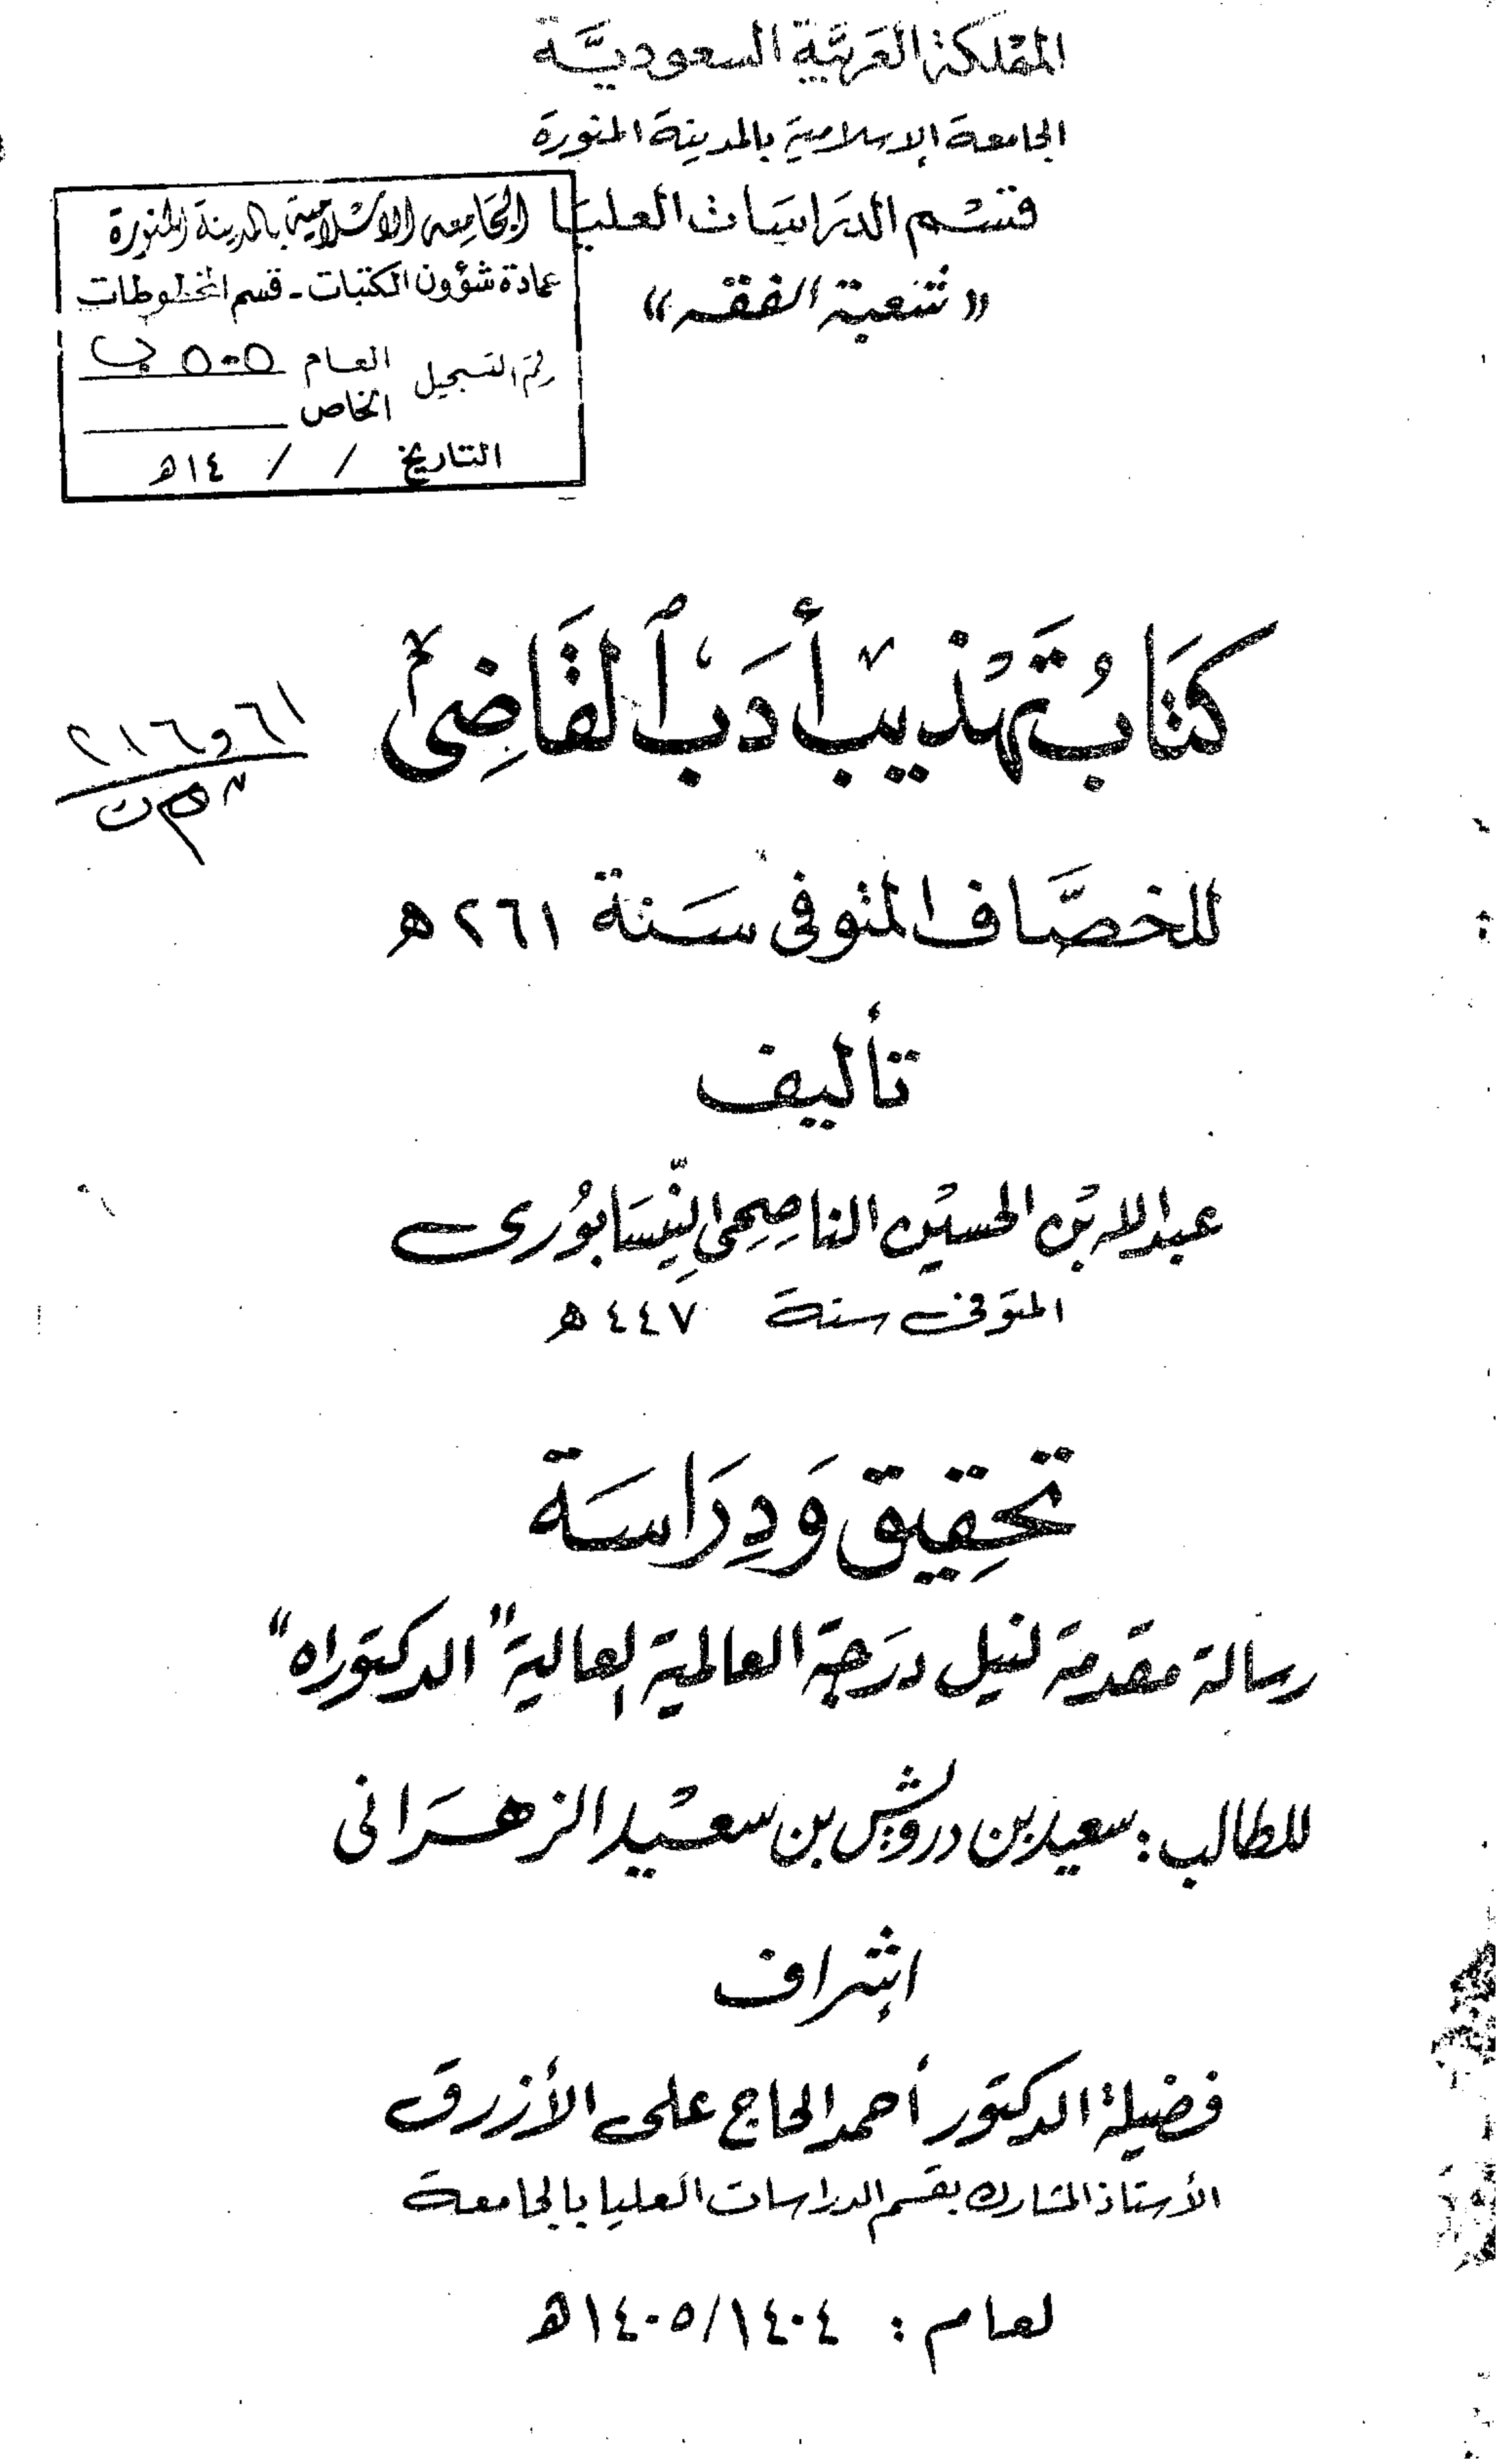 المملكة العربيَّة السعوديَّة
الجامعة الإسلامية بالمدينة المنورة
قسم الدراسات العليا
«شعبة الفقه»
الجامعة الإسلامية بالمدينة المنورة
عمادة شؤون المكتبات - قسم المخطوطات
رقم التسجيل العام ٥٠٥ ب
الخاص
التاريخ / / ١٤ه
كتَابُ تَهْذيب أدَب ٱلقَاضِى
٢١٦و٦١
للخصَّاف المتوفى سَنة ٢٦١ ه
تأليف
عبدالله بْن الحسيْن الناصِحِى النِّيسَابُورى
المتوفى سنة ٤٤٧ ه
تحقِيق وَدِرَاسَة
رسالة مقدمة لنيل درَجة العالمية العالية "الدكتوراه"
للطالب: سعيد بن درويش بن سعيْد الزهرَانى
إشراف
فضيلة الدكتور أحمد الحاج على الأزرق
الأستاذ المشارك بقسم الدراسات العليا بالجامعة
لعام: ١٤٠٥/١٤٠٤ه